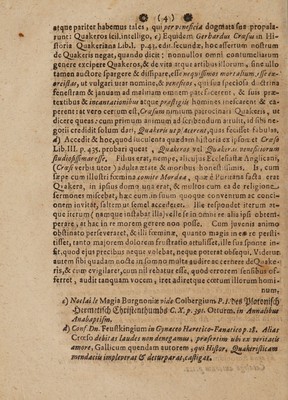 (4)
atque pariter habemus tales, qui per veneficia dogmata sua propala-
runt: Quakeros scil. intelligo, c) Equidem Gerhardus Crœsius in Hi-
storia Quakeriana Lib. I. p. 42. edn. secundæ, hoc assertum nostrum
de Quakeris negat, quando dicit: nonnullos omni contumeliarum
genere excipere Quakeros, & de vita atque artibus illorum, sine ullo
tamen auctore spargere & dissipare, esse nequissimos mortalium, esse en-
areistas, ut vulgari utar nomine, & veneficos, qui sua speciosa doctrina
fenestram & januam ad malitiam omnem patefacerent, & suis præ-
textibus & incantationibus atque præstigiis homines inescarent & ca-
perent: at vero cerrum est, Crœsium nimium patrocinari Quakeris, ut
dicere queas: cum primum animum ad scribendum attulit, id sibi ne-
gotii credidit solum dari, Quakeris ut placerent, quas fecisset fabulas.
d) Accedit & hoc, quod luculenta quædam historia ex ipsomet Crœsio
Lib. III. p. 435. probari queat, Quakeros vel Quakeras veneficiorum
studiosissimas esse. Filius erat, nempe, alicujus Ecclesiastæ Anglicani,
(Crœsii verba utor) adultæ ætatis & moribus honestissimis. Is, cum
sæpe cum illustri fœmina comite Hordea, quæ è Puritana facta erat
Quakera, in ipsius domo una erat, & multos cum ea de religione
sermones miscebat, hæc cum in suum quoque conventum ac concio-
nem invitat, saltem ut semel accederet. Ille respondet iterum at-
que iterum (namque instabat illa) velle se in omni re alia ipsi obtem-
perare, at hac in re morem gerere non posse. Cum juvenis animo
obstinato perseveraret, & illi fœminæ, quanto magis in eo re perstit-
isset, tanto majorem dolorem frustratio attulisset, ille sus sponte in-
fit, quod ejus precibus neque volebat, neque poterat obsequi. Verum
autem sibi quadam nocte in somno multa audire ac cernere de Quake-
ris, & cum evigilaret, cum nil rebatur esse, quod errorem sensibus of-
ferret, audit tanquam vocem, iret adiretque cœtum illorum homi-
num,
c) Naclai le Magia Burgnoniæ vide Colbergium P. I. des Platonisch-
Hermetisch Christenthumbs C. X. p. 391. Ottium. in Annalibus
Anabaptism.
d) Conf. Dn. Feustkingium in Gynæceo Hæretico-Fanatico p. 18. Alias
Crœso debitas laudes non denegamus, præsertim ubi ex veritatis
amore, Gallicum quendam autorem, qui Histor. Quakeristicam
mendaciis impleverat & deturparat, castigat.